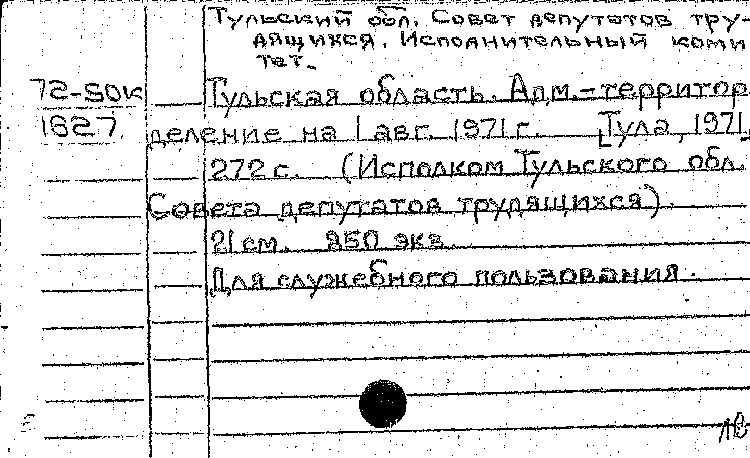 Тульский обл. Совет депутатов тру-
дящихся. Исполнительный коми
тет.
72-50к Тульская область. Адм.-территор
1627. деление на 1 авг. 1971 г. [Тула, 1971]
272 с. (Исполком Тульского обл.
Совета депутатов трудящихся).
21 см. 250 экз.
Для служебного пользования.